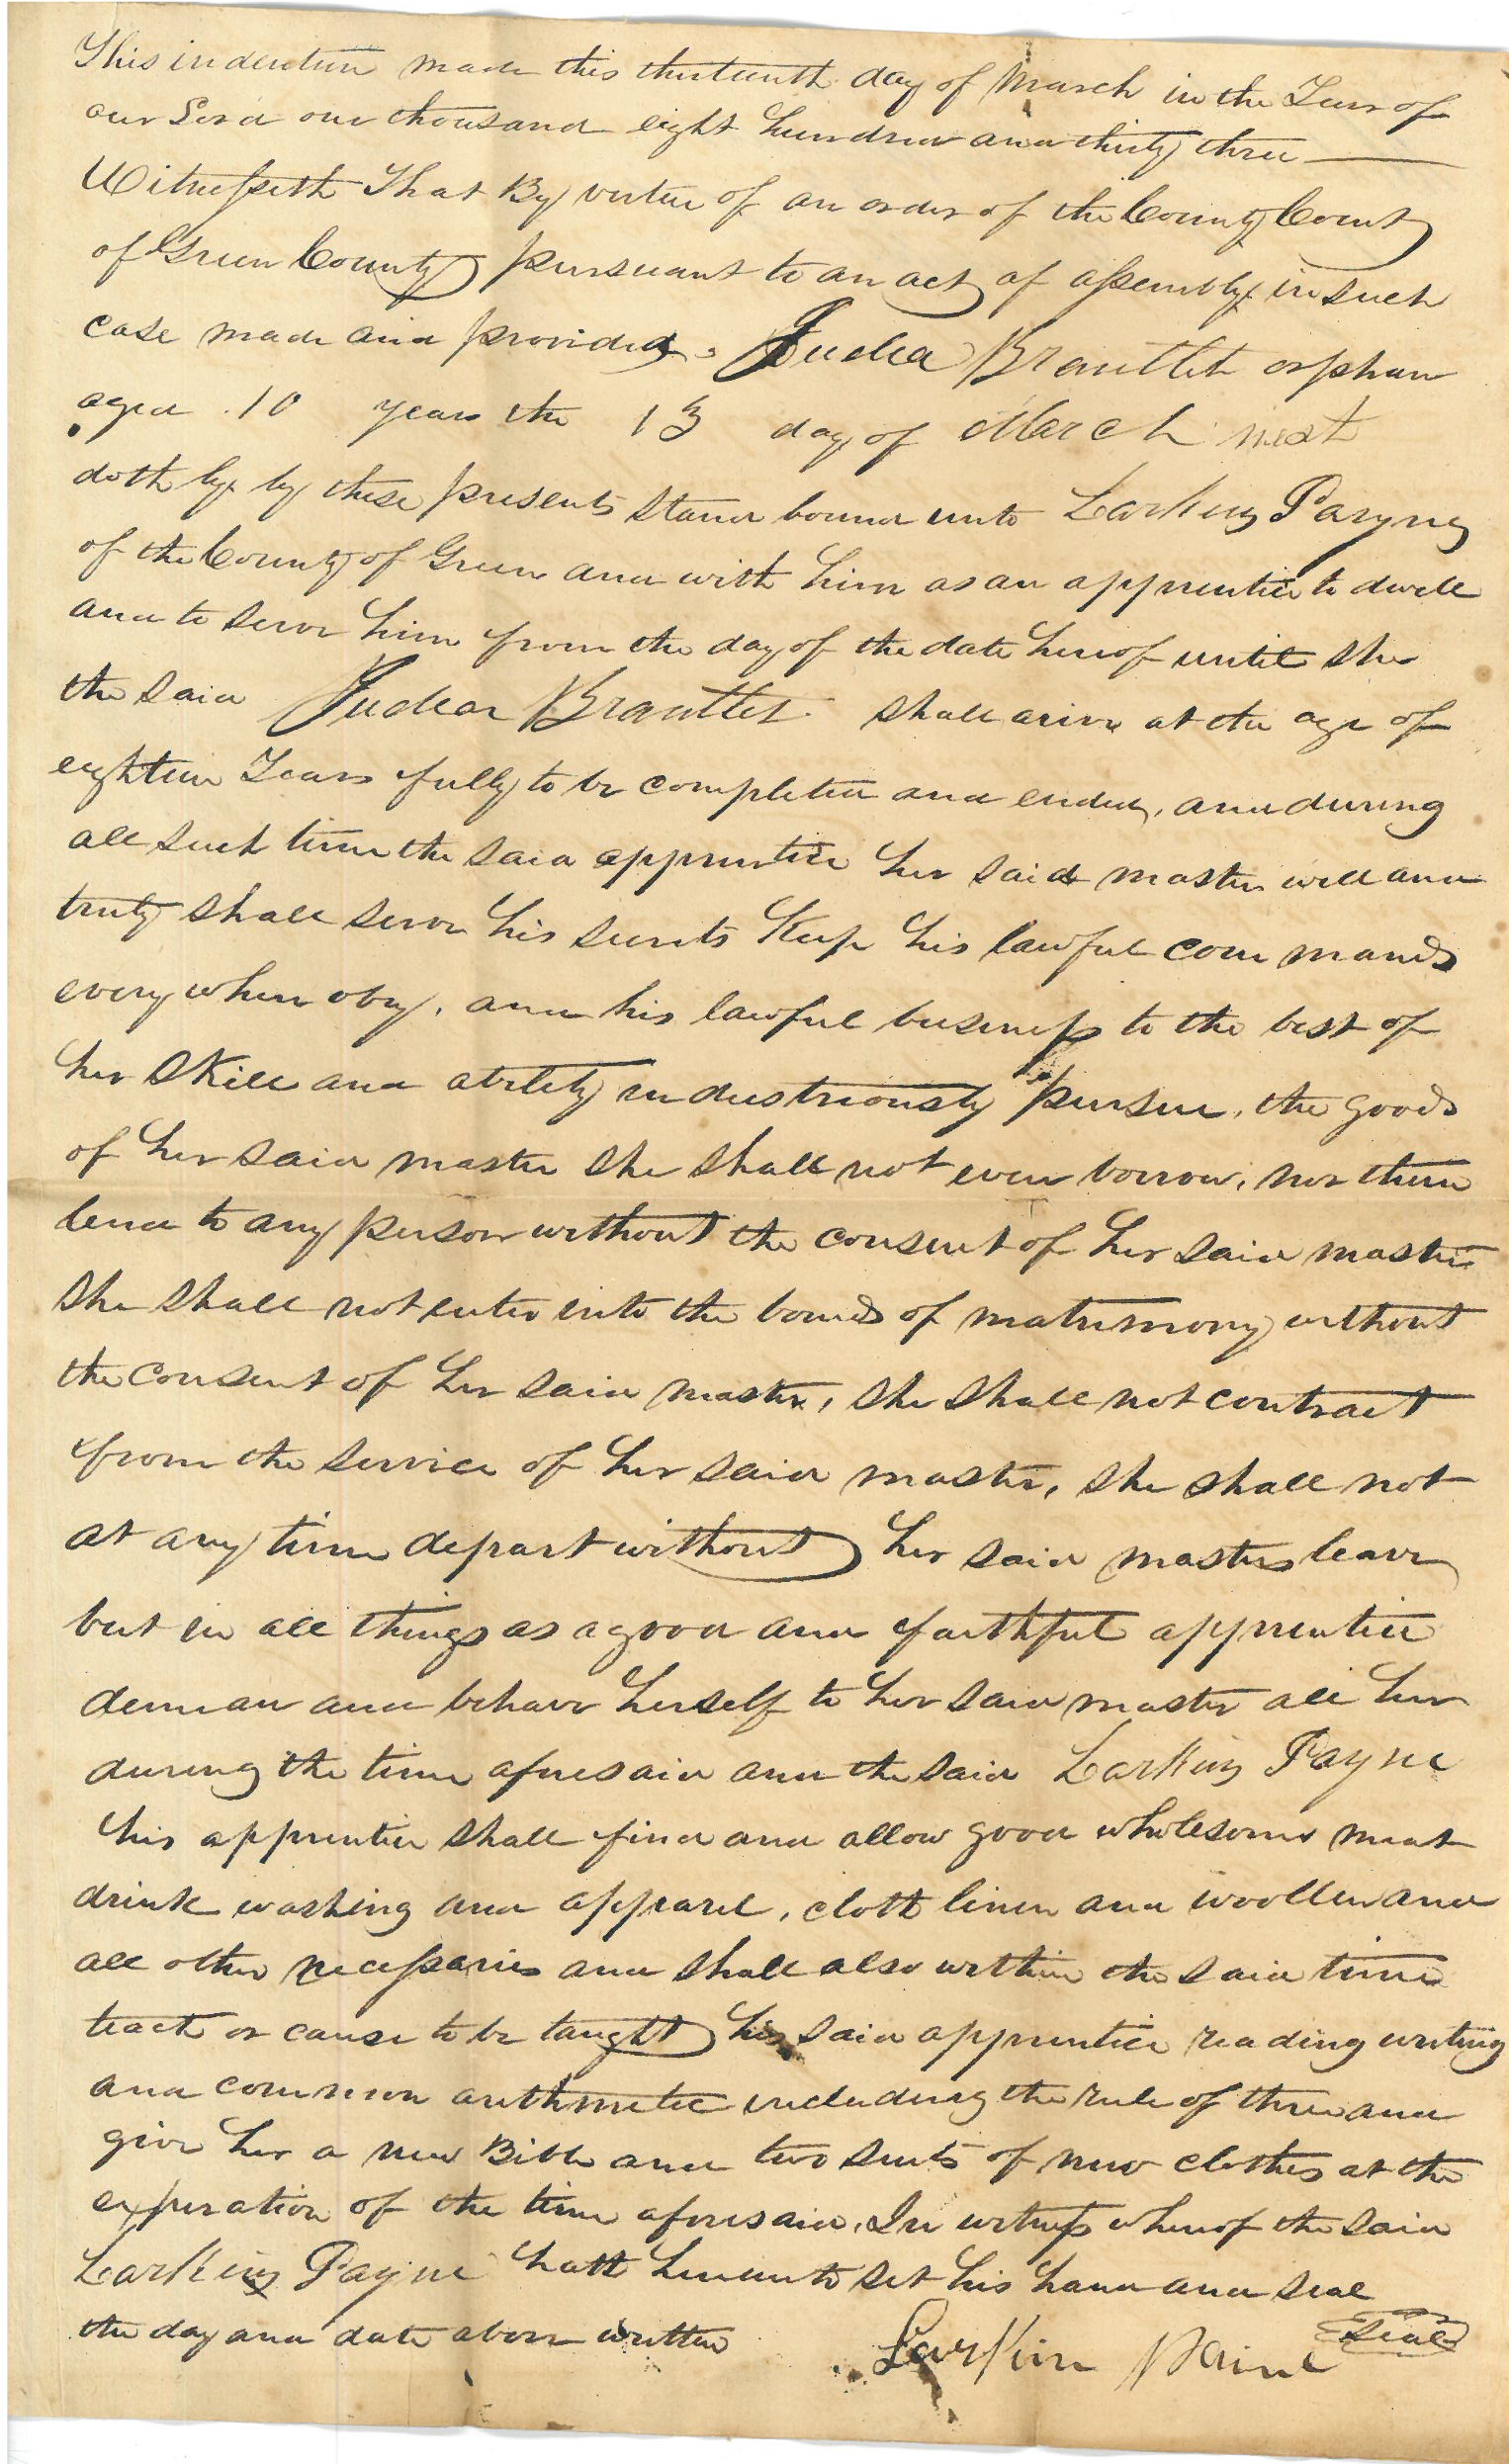 This indenture made this thirteenth day of March in the Year of
our Lord one thousand eight hundred and thirty three
Witnesseth That By virtue of an order of the County Court
of Green County pursuant to an act of assembly in such
case made and provided, Judea Brantlet orphan
aged 10 years the 13 day of March next
doth by by these presents stand bound unto Larking Payne
of the County of Green and with him as an apprentice to dwell
and to serve him from the day of the date hereof until she
the said Judea Brantlet shall arive at the age of
eighteen Years fully to be completed and ended, and during
all such time the said apprentice her said master well and
truly shall serve his secrets Keep his lawful commands
every where obey, and his lawful business to the best of
her skill and ability industriously pursue, the goods
of her said master she shall not even borrow, nor them
lend to any person without the consent of her said master
She shall not enter into the bonds of matrimony without
the consent of her said master, she shall not contract
from the service of her said master, she shall not
at any time depart without her said masters leave
but in all things as a good and faithful apprentice
demean and behave herself to her said master all her
during the time aforesaid and the said Larking Payne
his apprentice shall find and allow good wholesome meat
drink washing and apparel, cloth linen and woollen and
all other necessaries and shall also within the said time
teach or cause to be taught his said apprentice reading writing
and common arithmetic including the rule of three and
give her a new Bible and two suits of new clothes at the
expiration of the time aforesaid, In witness whereof the said
Larking Payne hath hereunto set his hand and seal
the day and date above written
Larkin Paine Seal